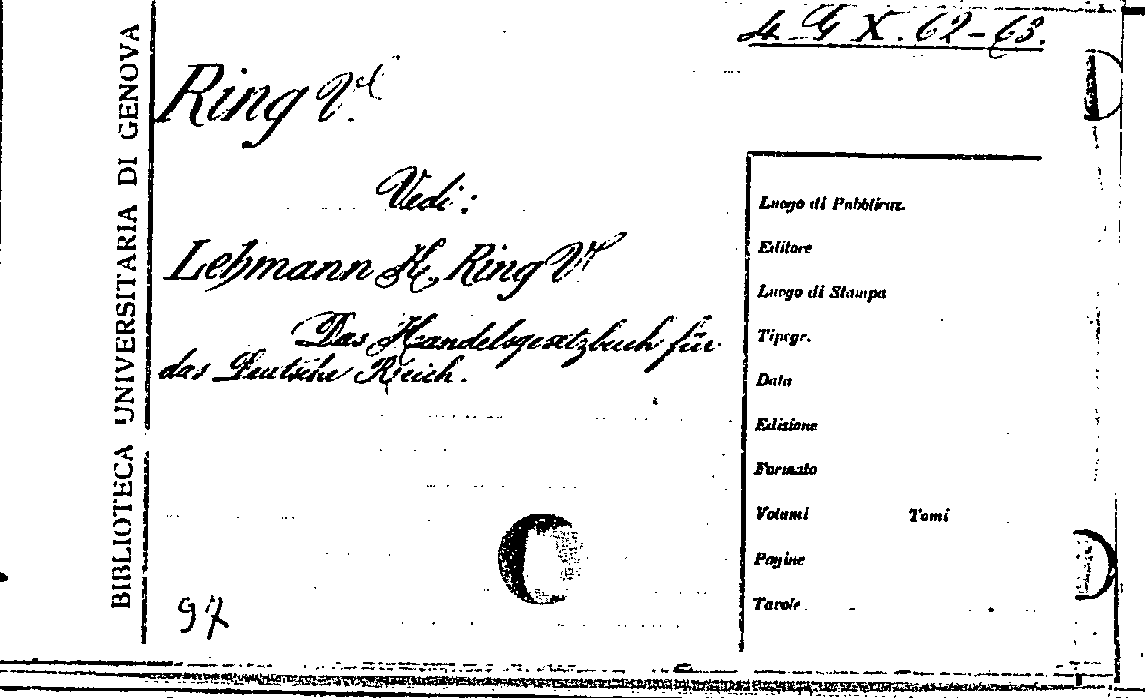 4. G X. 62-63.
BIBLIOTECA UNIVERSITARIA DI GENOVA
Ring V.
Vedi:
Lehmann K, Ring V.
Das Handelsgesetzbuch für
das Deutsche Reich.
97
Luogo di Pubblicaz.
Editore
Luogo di Stampa
Tipogr.
Data
Edizione
Formato
Volumi Tomi
Pagine
Tavole